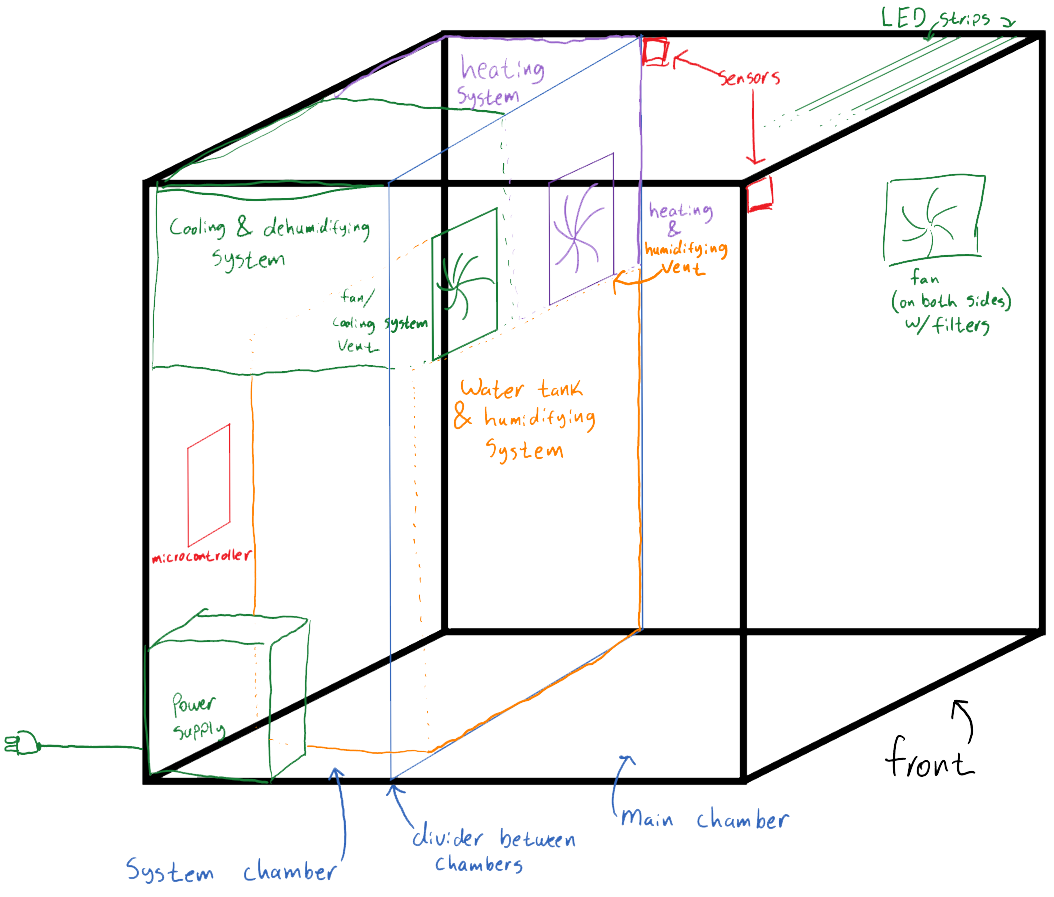 LED strips
heating
System
Sensors
Cooling & dehumidifying
System
heating
&
humidifying
Vent
fan/
Cooling System
Vent
fan
(on both sides)
w/filters
Water tank
& humidifying
System
microcontroller
Power
Supply
front
System chamber
divider between
chambers
Main chamber